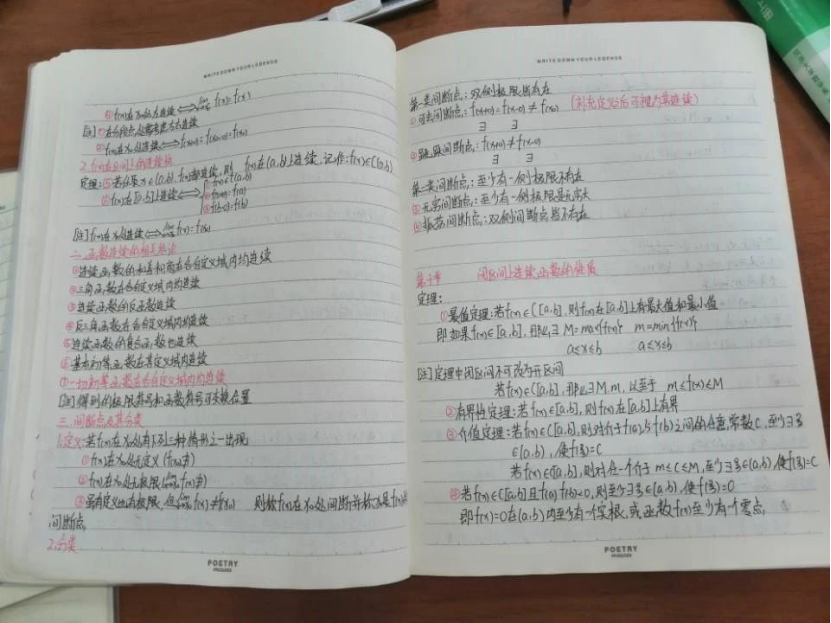 WRITE DOWN YOUR LEGENDS
①f(x)在x₀处连续⟺lim f(x)=f(x₀)
[注]①在分段点处需考虑左右连续
②f(x)在x₀处连续⟺f(x₀+0)=f(x₀-0)=f(x₀)
2. f(x)在区间上的连续性
定理:①若任取x₀∈(a,b), f(x)都连续,则 f(x)在(a,b)上连续,记作:f(x)∈C(a,b)
②f(x)在[a,b]上连续⟺
f(x)∈C(a,b)
f(a+0)=f(a)
f(b-0)=f(b)
[注]f(x)在x₀处连续⟺lim f(x)=f(x₀)
二、函数连续的相关结论
①连续函数的和差积商在各自定义域内均连续
②三角函数在各自定义域内均连续
③连续函数的反函数连续
④反三角函数在各自定义域内均连续
⑤连续函数的复合函数也连续
⑥基本初等函数在其定义域内连续
⑦一切初等函数在各自定义域内均连续
[注]得到的极限符号和函数符号可交换位置
三、间断点及其分类
1.定义:若f(x)在x₀处有下列三种情形之一出现
①f(x)在x₀处无定义 (f(x₀)∄)
②f(x)在x₀处无极限 (lim f(x)∄)
③虽有定义也有极限,但lim f(x)≠f(x₀) 则称f(x)在x₀处间断并称x₀是f(x)的
间断点
2.分类
POETRY
WRITE DOWN YOUR LEGENDS
第一类间断点:双侧极限皆存在
①可去间断点:f(x₀+0)=f(x₀-0)≠f(x₀) (补充定义后可视为其连续)
∃ ∃
②跳跃间断点:f(x₀+0)≠f(x₀-0)
∃ ∃
第二类间断点:至少有一侧极限不存在
①无穷间断点:至少有一侧极限是无穷大
②振荡间断点:双侧间断点皆不存在
第十节 闭区间上连续函数的性质
定理:
①最值定理:若f(x)∈C[a,b],则f(x)在[a,b]上有最大值和最小值
即如果f(x)∈[a,b],那么∃ M=max{f(x)}, m=min{f(x)}
a≤x≤b a≤x≤b
[注]定理中闭区间不可改为开区间
若f(x)∈C[a,b],那么∃M,m,以至于 m≤f(x)≤M
②有界性定理:若f(x)∈[a,b],则f(x)在[a,b]上有界
③介值定理:若f(x)∈C[a,b],则对介于f(a)与f(b)之间的任意常数C,至少∃ξ
∈(a,b),使f(ξ)=C
若f(x)∈C[a,b],则对任一个介于 m≤C≤M,至少∃ξ∈(a,b),使f(ξ)=C
④若f(x)∈C[a,b]且f(a)f(b)<0,则至少∃ξ∈(a,b),使f(ξ)=0
即f(x)=0在(a,b)内至少有一个实根,或函数f(x)至少有一个零点
POETRY